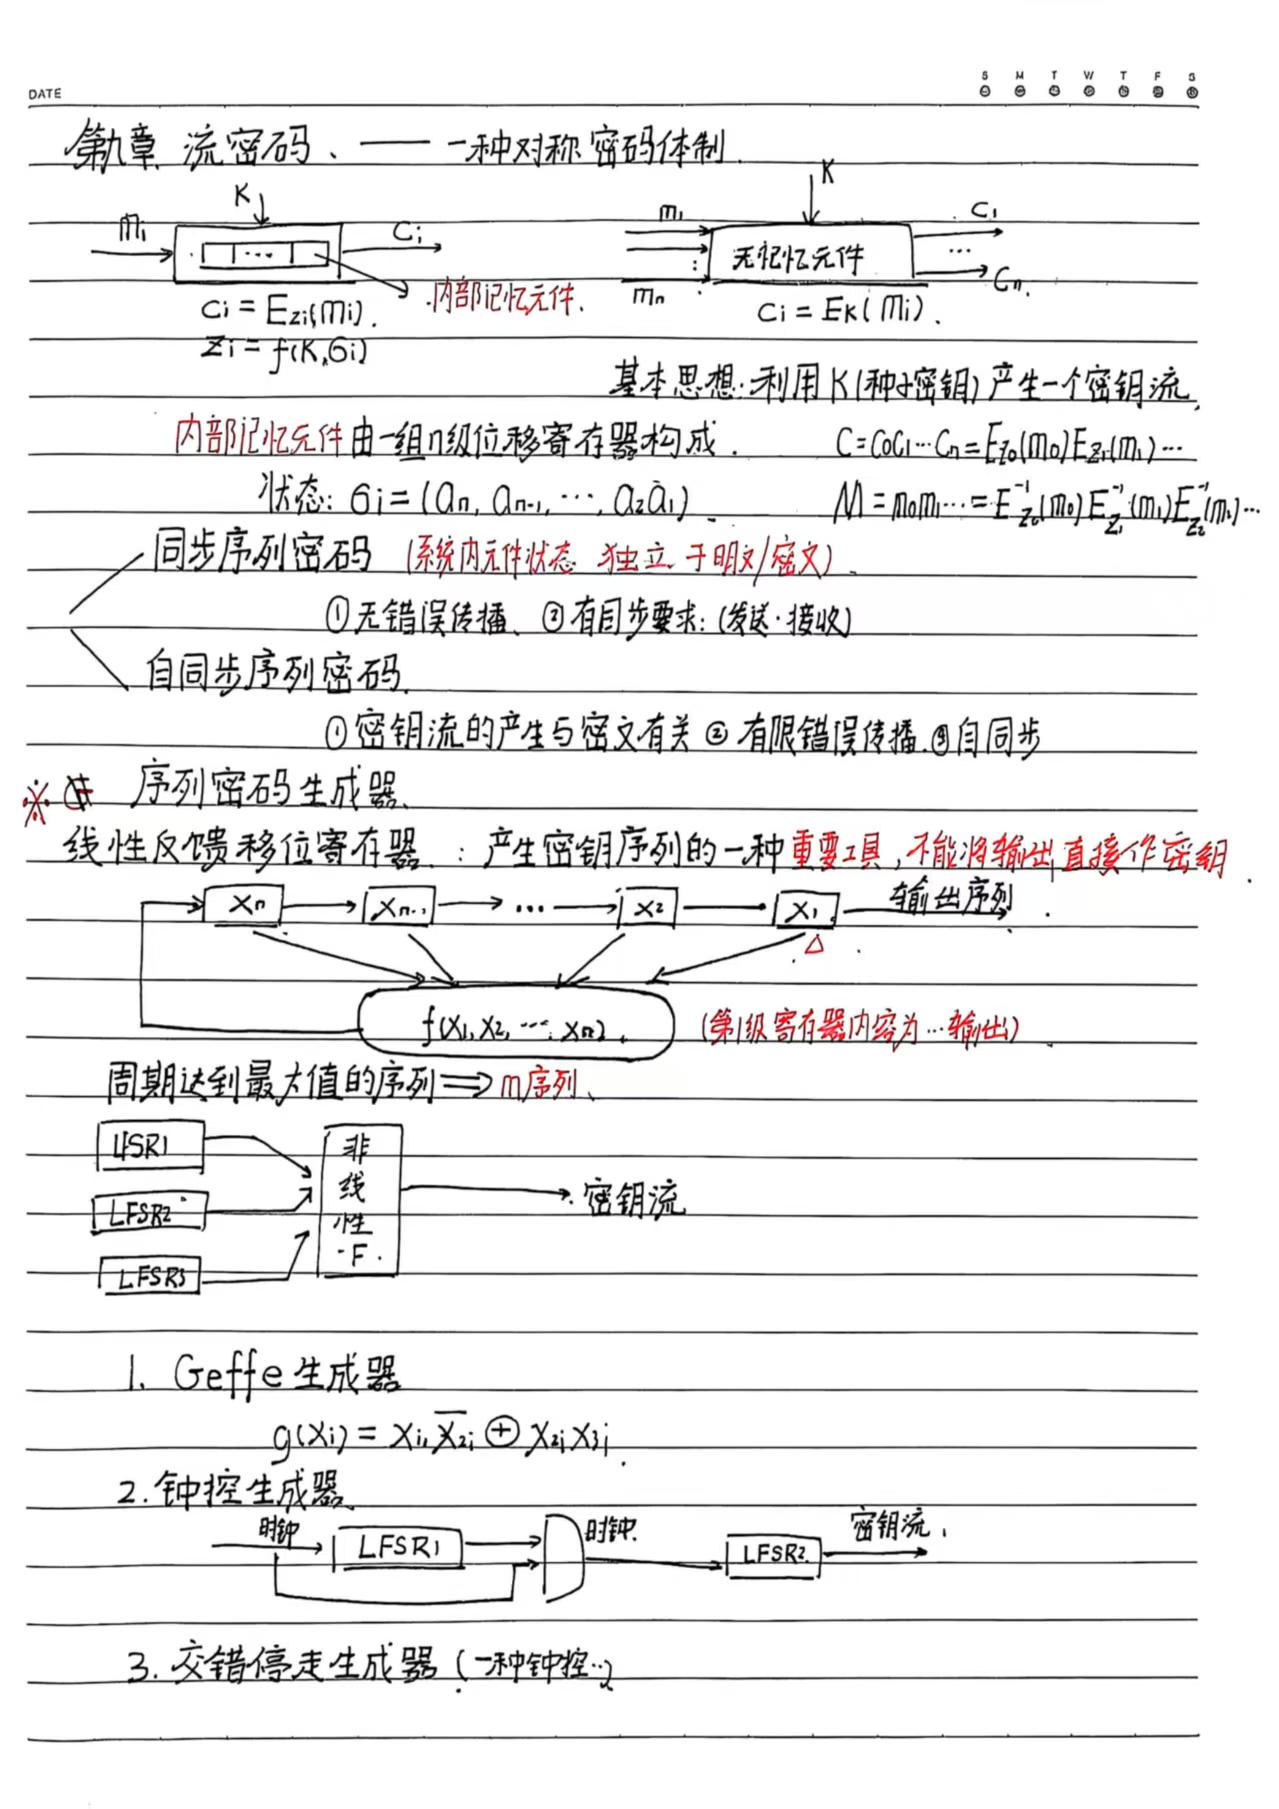 DATE
S M T W T F S
第九章 流密码、—— 一种对称密码体制.
K
mi
Ci
内部记忆元件.
Ci = Ezi(mi).
Zi = f(K,σi)
K
m1
⋮
mn
无记忆元件
C1
...
Cn.
Ci = EK(mi).
基本思想:利用K(种子密钥)产生一个密钥流.
内部记忆元件由一组n级位移寄存器构成.
C=C0C1…Cn=Ez0(m0)Ez1(m1)…
状态: σi = (an, an-1, …, a2a1)
M = m0m1… = E⁻¹z0(m0) E⁻¹z1(m1) E⁻¹z2(m2)…
同步序列密码 (系统内元件状态 独立于明文/密文).
①无错误传播、②有同步要求:(发送·接收)
自同步序列密码.
①密钥流的产生与密文有关 ②有限错误传播.③自同步
※ 序列密码生成器、
线性反馈移位寄存器.:产生密钥序列的一种重要工具,不能将输出直接作密钥.
Xn
Xn-1
...
X2
X1
输出序列
△
f(X1, X2, …, Xn).
(第1级寄存器内容为…输出)
周期达到最大值的序列 ⟹ m序列、
LFSR1
LFSR2
LFSR3
非
线
性
F
密钥流
1. Geffe生成器
g(xi) = x1i x̅2i ⊕ x2i x3i.
2.钟控生成器
时钟
LFSR1
时钟.
LFSR2
密钥流.
3.交错停走生成器(一种钟控…)